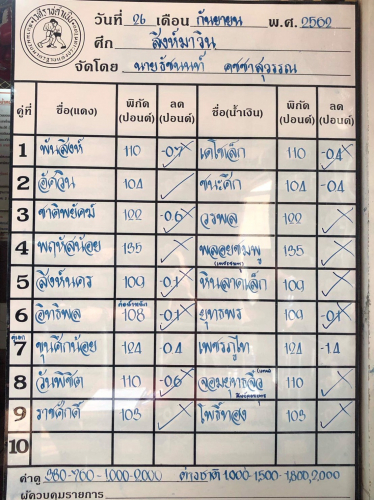 วันที่ 26 เดือน กันยายน พ.ศ. 2562
ศึก สิงห์มาวิน
จัดโดย นายธัชนนท์ คชชาสุวรรณ
คู่ที่ ชื่อ(แดง) พิกัด (ปอนด์) ลด (ปอนด์) ชื่อ(น้ำเงิน) พิกัด (ปอนด์) ลด (ปอนด์)
1 พันสิงห์ 110 -0.7 เดโชเล็ก 110 -0.4
2 อัศวิน 104 ชนะศึก 104 -0.4
3 ชาติพยัคฆ์ 122 -0.6 วรพล 122
4 พฤหัสน้อย 135 พลอยชมพู 135
5 สิงห์นคร 109 -0.1 หินลาดเล็ก 109
6 อิทธิพล 108 -0.1 ยุทธพร 109 -0.1
คู่เอก
7 ขุนศึกน้อย 124 -0.4 เพชรภูไท 124 -1.4
8 วันพิชิต 110 -0.6 จอมยุทธจิ๋ว 110
9 ราชศักดิ์ 103 โพธิ์ทอง 103
10
ค่าดู 380-700-1,000-2,000 ต่างชาติ 1,000-1,500-1,800,2,000
ผู้ควบคุมรายการ